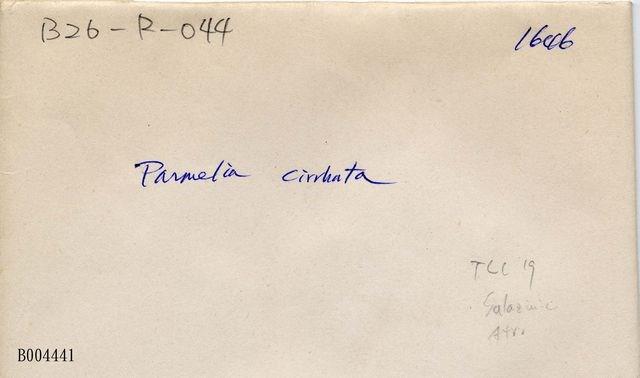 B26-R-044
1646
Parmelia cirrhata
TLC 19
Salazinic
Atra
B004441